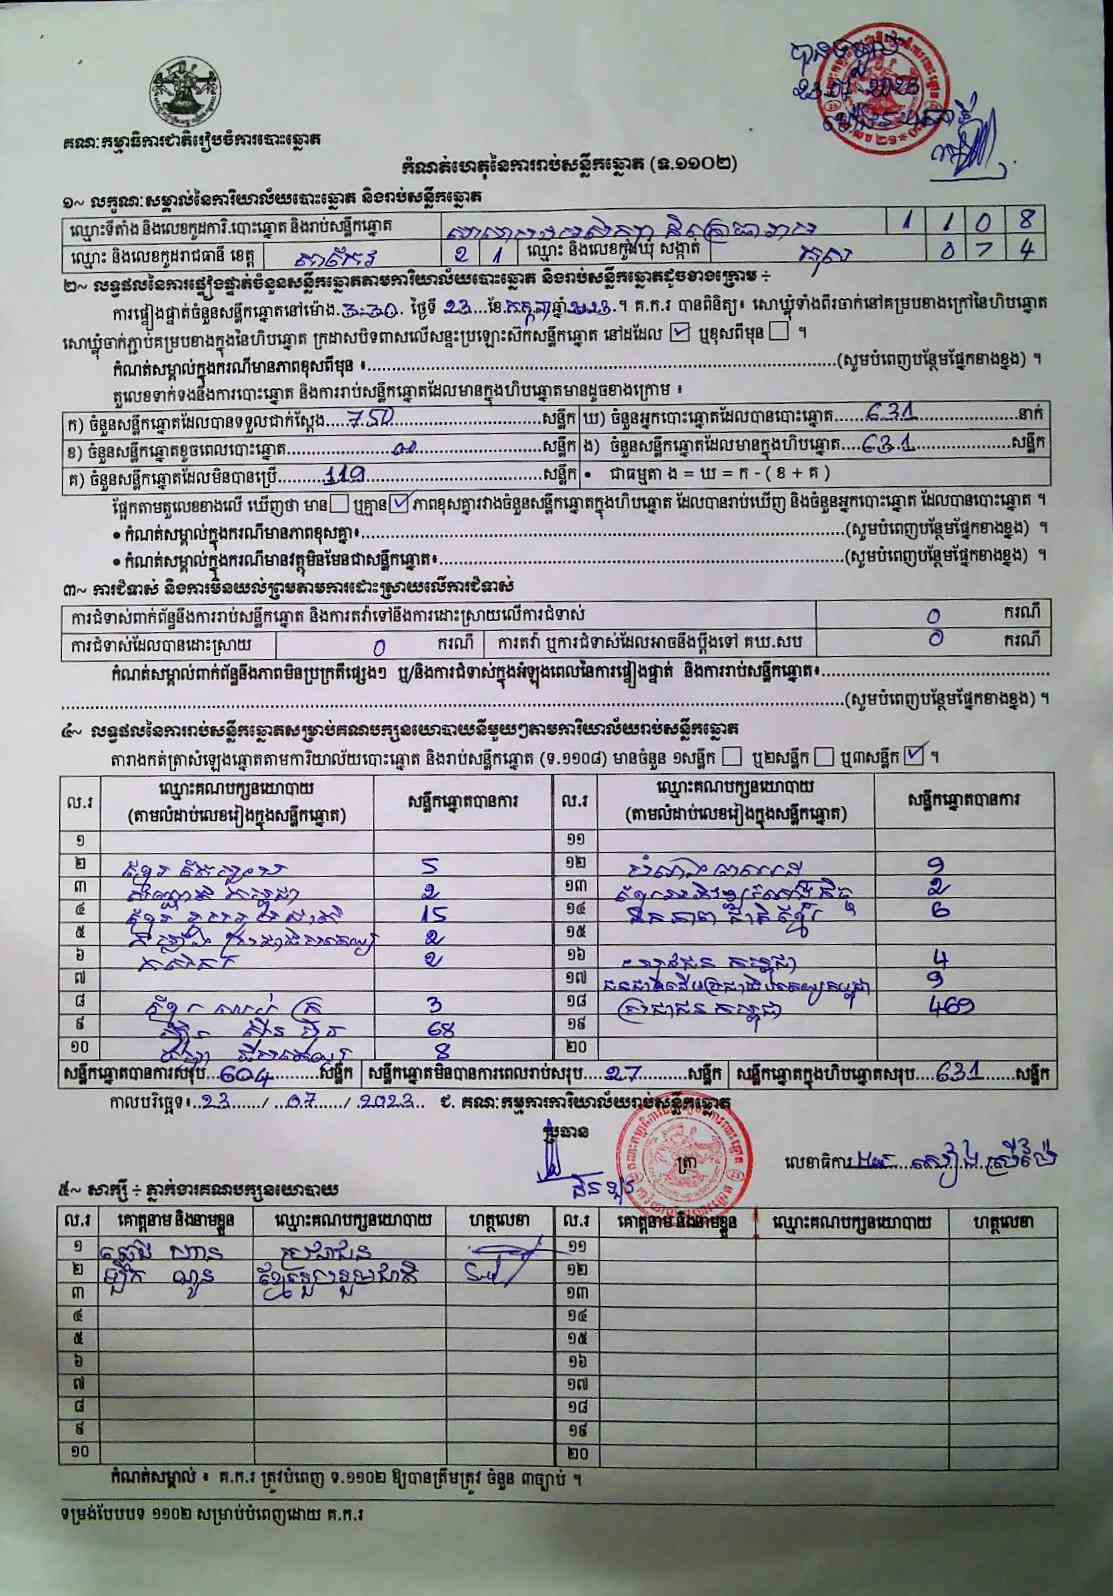 គណៈកម្មាធិការជាតិរៀបចំការបោះឆ្នោត
កំណត់ហេតុនៃការរាប់សន្លឹកឆ្នោត (ទ.១១០២)
១~ លក្ខណៈសម្គាល់នៃការិយាល័យបោះឆ្នោត និងរាប់សន្លឹកឆ្នោត
ឈ្មោះទីតាំង និងលេខកូដការិ.បោះឆ្នោត និងរាប់សន្លឹកឆ្នោត 1 1 0 8
ឈ្មោះ និងលេខកូដរាជធានី ខេត្ត តាកែវ 2 1 ឈ្មោះ និងលេខកូដឃុំ សង្កាត់ គុស 0 7 4
២~ លទ្ធផលនៃការផ្ទៀងផ្ទាត់ចំនួនសន្លឹកឆ្នោតតាមការិយាល័យបោះឆ្នោត និងរាប់សន្លឹកឆ្នោតដូចខាងក្រោម ÷
ការផ្ទៀងផ្ទាត់ចំនួនសន្លឹកឆ្នោតនៅម៉ោង 3:30 ថ្ងៃទី 23 ខែ កក្កដា ឆ្នាំ 2023 ។ គ.ក.រ បានពិនិត្យ៖ សោឃ្លុំទាំងពីរចាក់នៅគម្របខាងក្រៅនៃហិបឆ្នោត
សោឃ្លុំចាក់ភ្ជាប់គម្របខាងក្នុងនៃហិបឆ្នោត ក្រដាសបិទពាសលើសន្ទះប្រឡោះស៊កសន្លឹកឆ្នោត នៅដដែល ☑ ឬខុសពីមុន ☐ ។
កំណត់សម្គាល់ក្នុងករណីមានភាពខុសពីមុន ៖ (សូមបំពេញបន្ថែមផ្នែកខាងខ្នង) ។
តួលេខទាក់ទងនឹងការបោះឆ្នោត និងការរាប់សន្លឹកឆ្នោតដែលមានក្នុងហិបឆ្នោតមានដូចខាងក្រោម ៖
ក) ចំនួនសន្លឹកឆ្នោតដែលបានទទួលជាក់ស្តែង 750 សន្លឹក ឃ) ចំនួនអ្នកបោះឆ្នោតដែលបានបោះឆ្នោត 631 នាក់
ខ) ចំនួនសន្លឹកឆ្នោតខូចពេលបោះឆ្នោត 00 សន្លឹក ង) ចំនួនសន្លឹកឆ្នោតដែលមានក្នុងហិបឆ្នោត 631 សន្លឹក
គ) ចំនួនសន្លឹកឆ្នោតដែលមិនបានប្រើ 119 សន្លឹក • ជាធម្មតា ង = ឃ = ក - ( ខ + គ )
ផ្អែកតាមតួលេខខាងលើ ឃើញថា មាន ☐ ឬគ្មាន ☑ ភាពខុសគ្នារវាងចំនួនសន្លឹកឆ្នោតក្នុងហិបឆ្នោត ដែលបានរាប់ឃើញ និងចំនួនអ្នកបោះឆ្នោត ដែលបានបោះឆ្នោត ។
• កំណត់សម្គាល់ក្នុងករណីមានភាពខុសគ្នា៖ (សូមបំពេញបន្ថែមផ្នែកខាងខ្នង) ។
• កំណត់សម្គាល់ក្នុងករណីមានវត្ថុមិនមែនជាសន្លឹកឆ្នោត៖ (សូមបំពេញបន្ថែមផ្នែកខាងខ្នង) ។
៣~ ការជំទាស់ និងការមិនយល់ព្រមតាមការដោះស្រាយលើការជំទាស់
ការជំទាស់ពាក់ព័ន្ធនឹងការរាប់សន្លឹកឆ្នោត និងការតវ៉ាទៅនឹងការដោះស្រាយលើការជំទាស់ 0 ករណី
ការជំទាស់ដែលបានដោះស្រាយ 0 ករណី ការតវ៉ា ឬការជំទាស់ដែលអាចនឹងប្តឹងទៅ គឃ.សប 0 ករណី
កំណត់សម្គាល់ពាក់ព័ន្ធនឹងភាពមិនប្រក្រតីផ្សេងៗ ឬ/និងការជំទាស់ក្នុងអំឡុងពេលនៃការផ្ទៀងផ្ទាត់ និងការរាប់សន្លឹកឆ្នោត៖
(សូមបំពេញបន្ថែមផ្នែកខាងខ្នង) ។
៤~ លទ្ធផលនៃការរាប់សន្លឹកឆ្នោតសម្រាប់គណបក្សនយោបាយនីមួយៗតាមការិយាល័យរាប់សន្លឹកឆ្នោត
តារាងកត់ត្រាសំឡេងឆ្នោតតាមការិយាល័យបោះឆ្នោត និងរាប់សន្លឹកឆ្នោត (ទ.១១០៨) មានចំនួន ១សន្លឹក ☐ ឬ២សន្លឹក ☐ ឬ៣សន្លឹក ☑ ។
ល.រ ឈ្មោះគណបក្សនយោបាយ (តាមលំដាប់លេខរៀងក្នុងសន្លឹកឆ្នោត) សន្លឹកឆ្នោតបានការ ល.រ ឈ្មោះគណបក្សនយោបាយ (តាមលំដាប់លេខរៀងក្នុងសន្លឹកឆ្នោត) សន្លឹកឆ្នោតបានការ
១ ១១
២ 5 ១២ 9
៣ កម្ពុជា 2 ១៣ 2
៤ ខ្មែរ 15 ១៤ ឯកភាពជាតិខ្មែរ 6
៥ 2 ១៥
៦ 2 ១៦ កម្ពុជា 4
៧ ១៧ 9
៨ ខ្មែរ 3 ១៨ ប្រជាជនកម្ពុជា 469
៩ ហ្វ៊ុនស៊ិនប៉ិច 68 ១៩
១០ 8 ២០
សន្លឹកឆ្នោតបានការសរុប 604 សន្លឹក សន្លឹកឆ្នោតមិនបានការពេលរាប់សរុប 27 សន្លឹក សន្លឹកឆ្នោតក្នុងហិបឆ្នោតសរុប 631 សន្លឹក
កាលបរិច្ឆេទ៖ 23 / 07 / 2023 ជ. គណៈកម្មការការិយាល័យរាប់សន្លឹកឆ្នោត
ប្រធាន
ត្រា
លេខាធិការ
៥~ សាក្សី ÷ ភ្នាក់ងារគណបក្សនយោបាយ
ល.រ គោត្តនាម និងនាមខ្លួន ឈ្មោះគណបក្សនយោបាយ ហត្ថលេខា ល.រ គោត្តនាម និងនាមខ្លួន ឈ្មោះគណបក្សនយោបាយ ហត្ថលេខា
១ ប្រជាជន ១១
២ ១២
៣ ១៣
៤ ១៤
៥ ១៥
៦ ១៦
៧ ១៧
៨ ១៨
៩ ១៩
១០ ២០
កំណត់សម្គាល់ ៖ គ.ក.រ ត្រូវបំពេញ ទ.១១០២ ឱ្យបានត្រឹមត្រូវ ចំនួន ៣ច្បាប់ ។
ទម្រង់បែបបទ ១១០២ សម្រាប់បំពេញដោយ គ.ក.រ